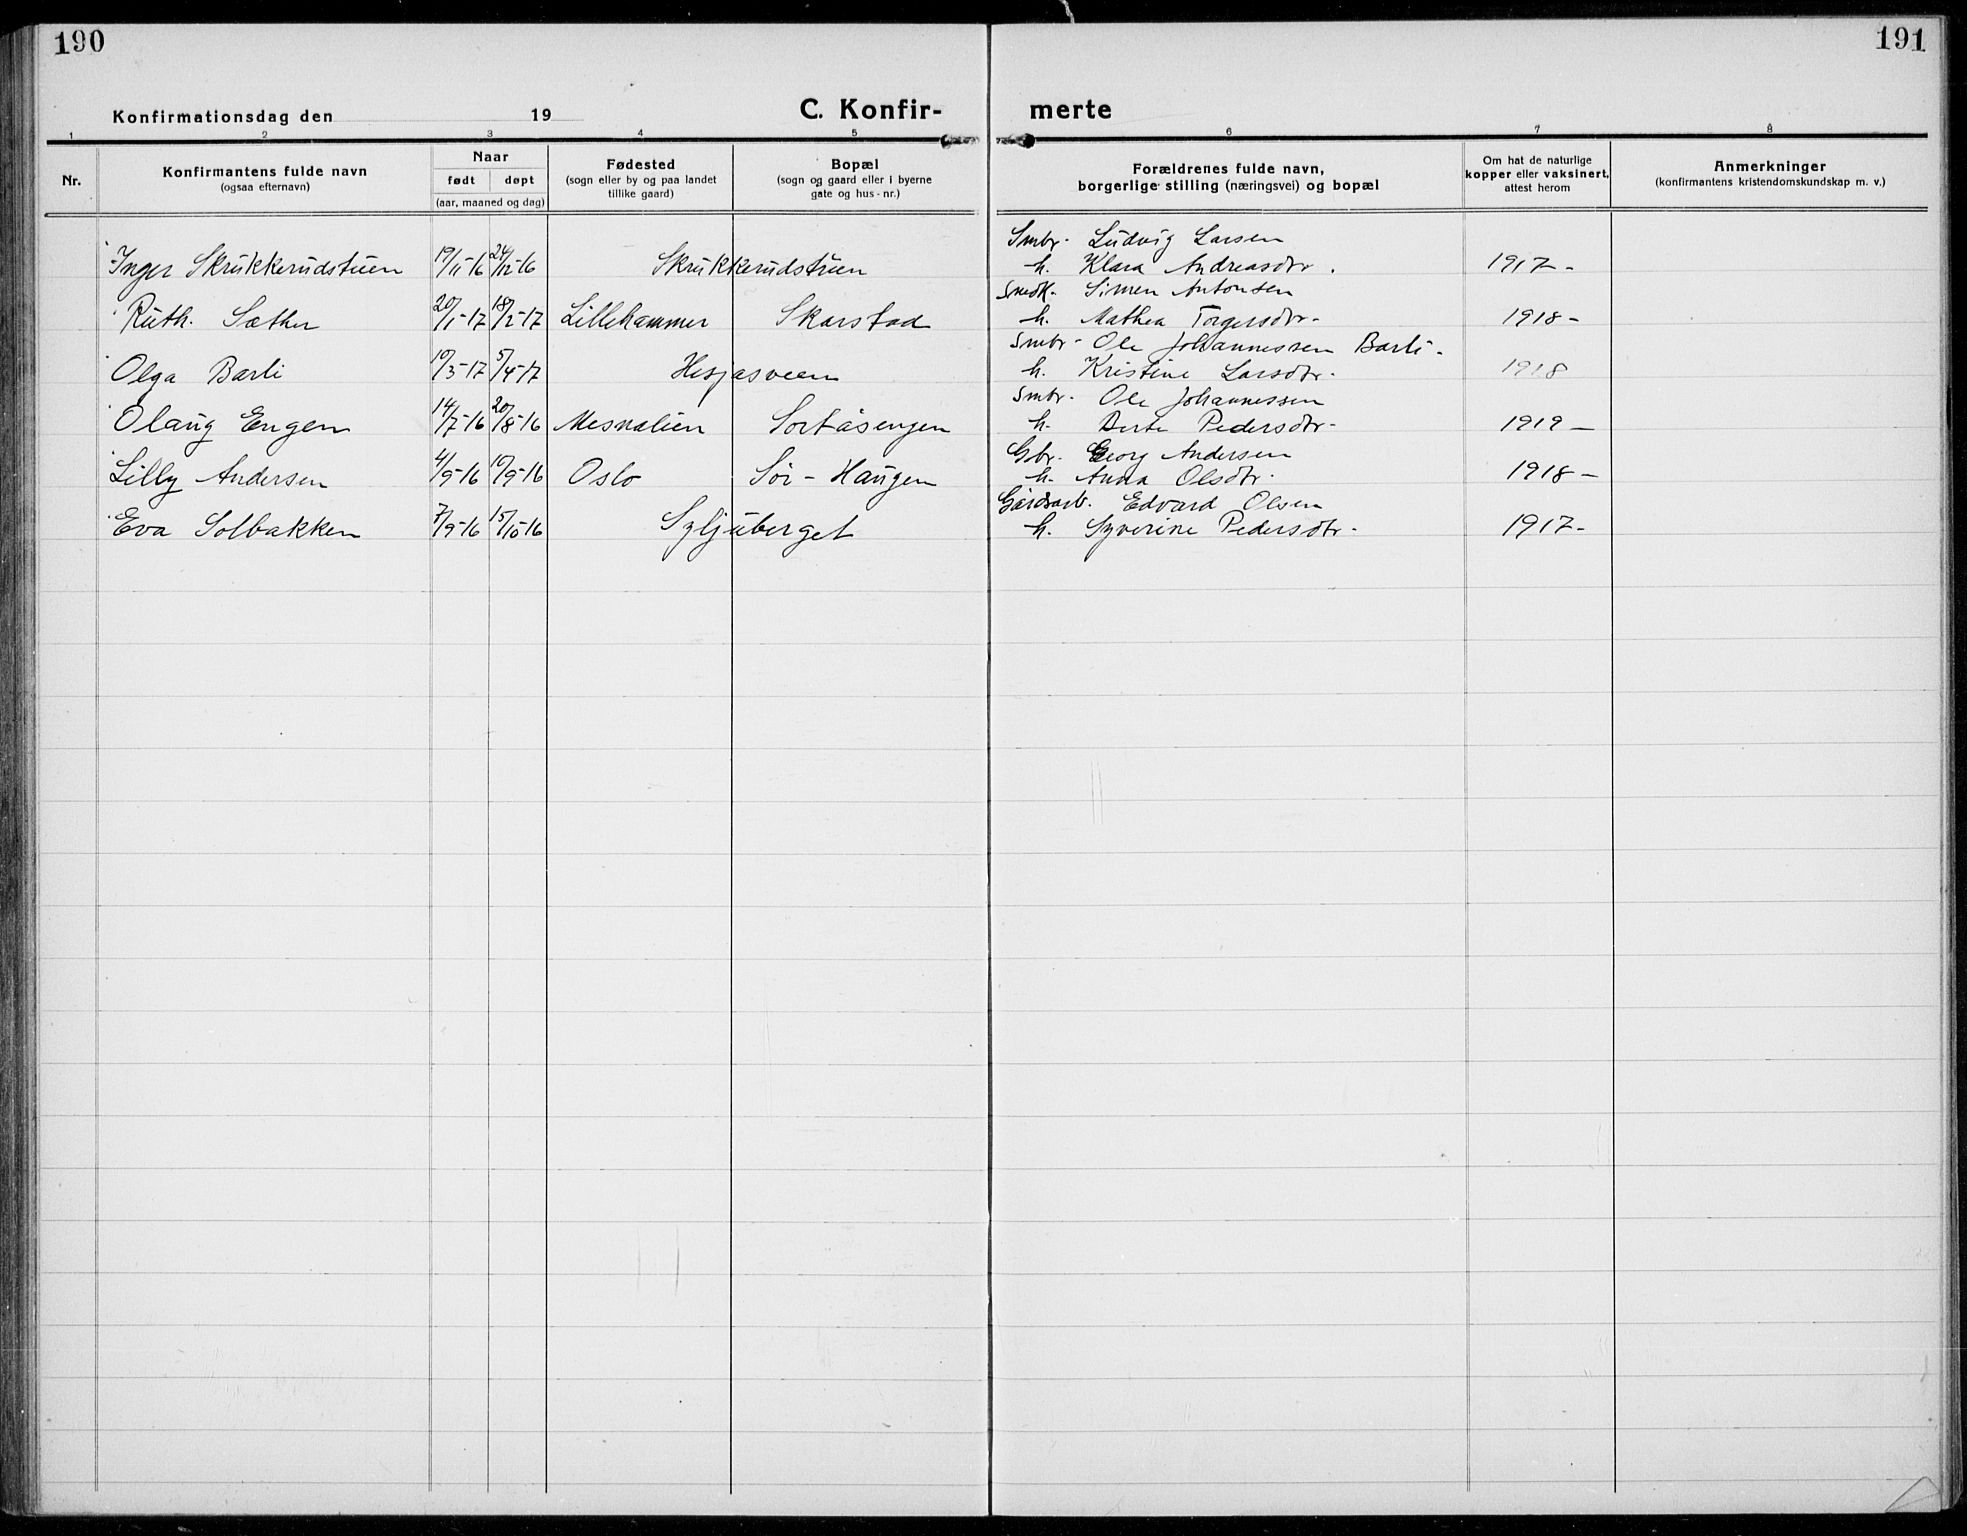 190
191
Konfirmationsdag den 19
C. Konfir-
merte
1 2 3 4 5 6 7 8
Nr.
Konfirmantens fulde navn
(ogsaa efternavn)
Naar
født døpt
(aar, maaned og dag)
Fødested
(sogn eller by og paa landet
tillike gaard)
Bopæl
(sogn og gaard eller i byerne
gate og hus-nr.)
Forældrenes fulde navn,
borgerlige stilling (næringsvei) og bopæl
Om hat de naturlige
kopper eller vaksinert,
attest herom
Anmerkninger
(konfirmantens kristendomskundskap m. v.)
Smbr. Ludvig Larsen
Inger Skrukkerudstuen 19/11-16 24/12-16 Skrukkerudstuen h. Klara Andreasdtr. 1917-
Snedk. Simen Antonsen
Ruth. Sæther 20/1-17 18/2-17 Lillehammer Skarstad h. Mathea Torgersdtr- 1918-
Smbr- Ole Johannessen Barli-
Olga Barli 10/3-17 5/4-17 Hesjasveen h. Kristine Larsdtr. 1918
Smbr. Ole Johannessen
Olaug Engen 14/7-16 20/8-16 Mesnalien Sortåsengen h. Berte Pedersdtr- 1919-
Gbr. Georg Andersen
Lilly Andersen 4/9-16 10/9-16 Oslo Sør-Haugen h. Anna Olsdtr. 1918-
Gårdsarb. Edvard Olsen
Eva Solbakken 7/9-16 15/10-16 Syljuberget h. Syverine Pedersdtr- 1917-